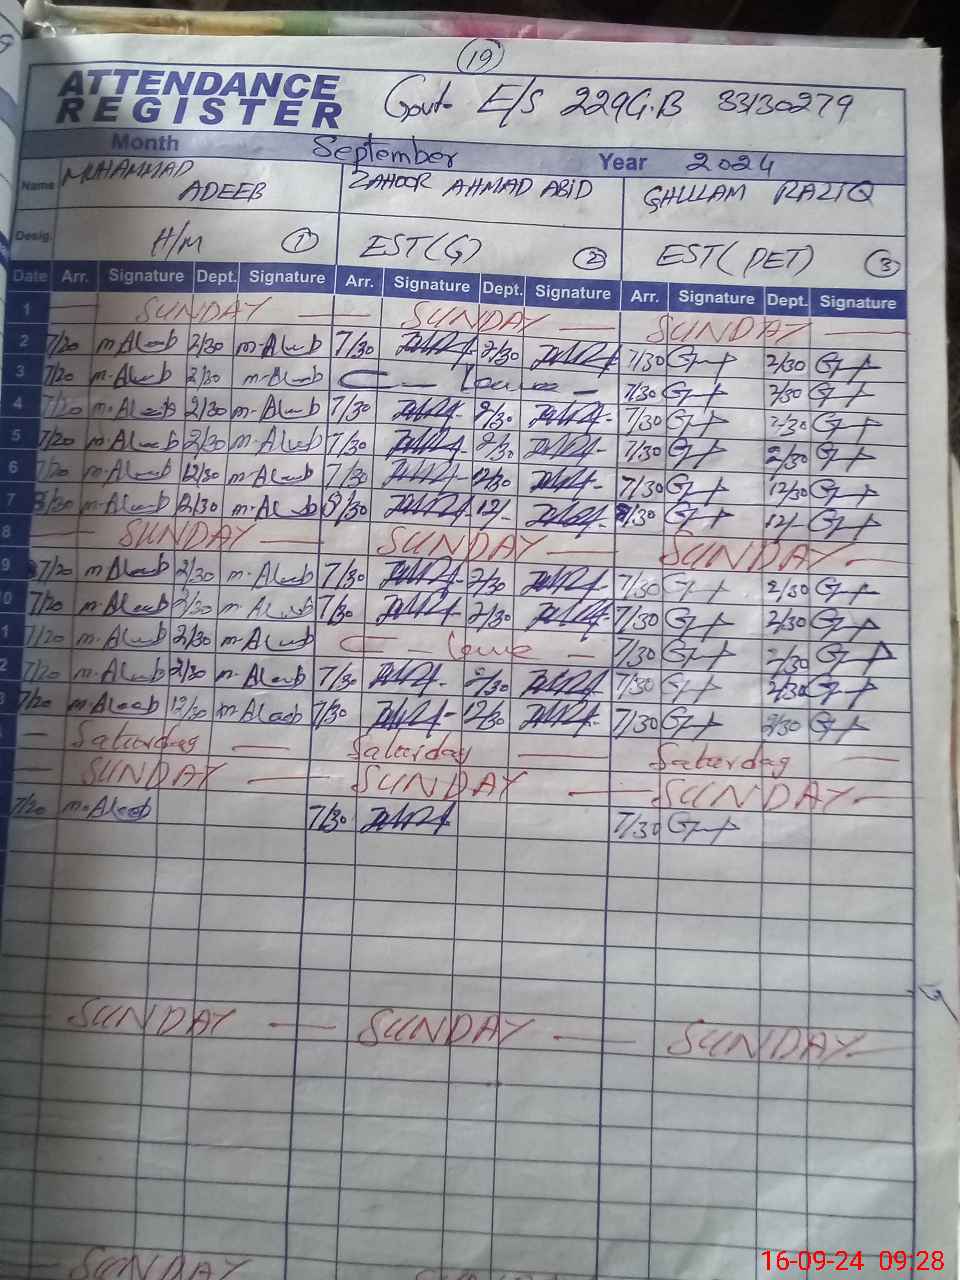 19
ATTENDANCE REGISTER Govt E/S 229G.B 33130279
Month September Year 2024
Name MUHAMMAD ADEEB ZAHOOR AHMAD ABID GHULAM RAZIQ
Desig. H/M 1 EST(G) 2 EST(PET) 3
Date Arr. Signature Dept. Signature Arr. Signature Dept. Signature Arr. Signature Dept. Signature
1 — SUNDAY — — SUNDAY — SUNDAY —
2 7/20 m.Aleeb 2/30 m.Aleeb 7/30 2/30 7/30 2/30
3 7/20 m.Aleeb 2/30 m.Aleeb C — Leave — 7/30 2/30
4 7/20 m.Aleeb 2/30 m.Aleeb 7/30 2/30 7/30 2/30
5 7/20 m.Aleeb 2/30 m.Aleeb 7/30 2/30 7/30 2/30
6 7/20 m.Aleeb 12/30 m.Aleeb 7/30 12/30 7/30 12/30
7 8/30 m.Aleeb 2/30 m.Aleeb 8/30 12/- 8/30 12/-
8 — SUNDAY — SUNDAY — SUNDAY —
9 7/20 m.Aleeb 2/30 m.Aleeb 7/30 2/30 7/30 2/30
0 7/20 m.Aleeb 2/30 m.Aleeb 7/30 2/30 7/30 2/30
1 7/20 m.Aleeb 2/30 m.Aleeb C — Leave — 7/30 2/30
2 7/20 m.Aleeb 2/30 m.Aleeb 7/30 2/30 7/30 2/30
3 7/20 m.Aleeb 12/30 m.Aleeb 7/30 12/30 7/30 2/30
— Saturday — Saturday — Saturday —
— SUNDAY — SUNDAY — SUNDAY —
7/20 m.Aleeb 7/30 7/30
— SUNDAY — SUNDAY — SUNDAY —
SUNDAY
16-09-24 09:28